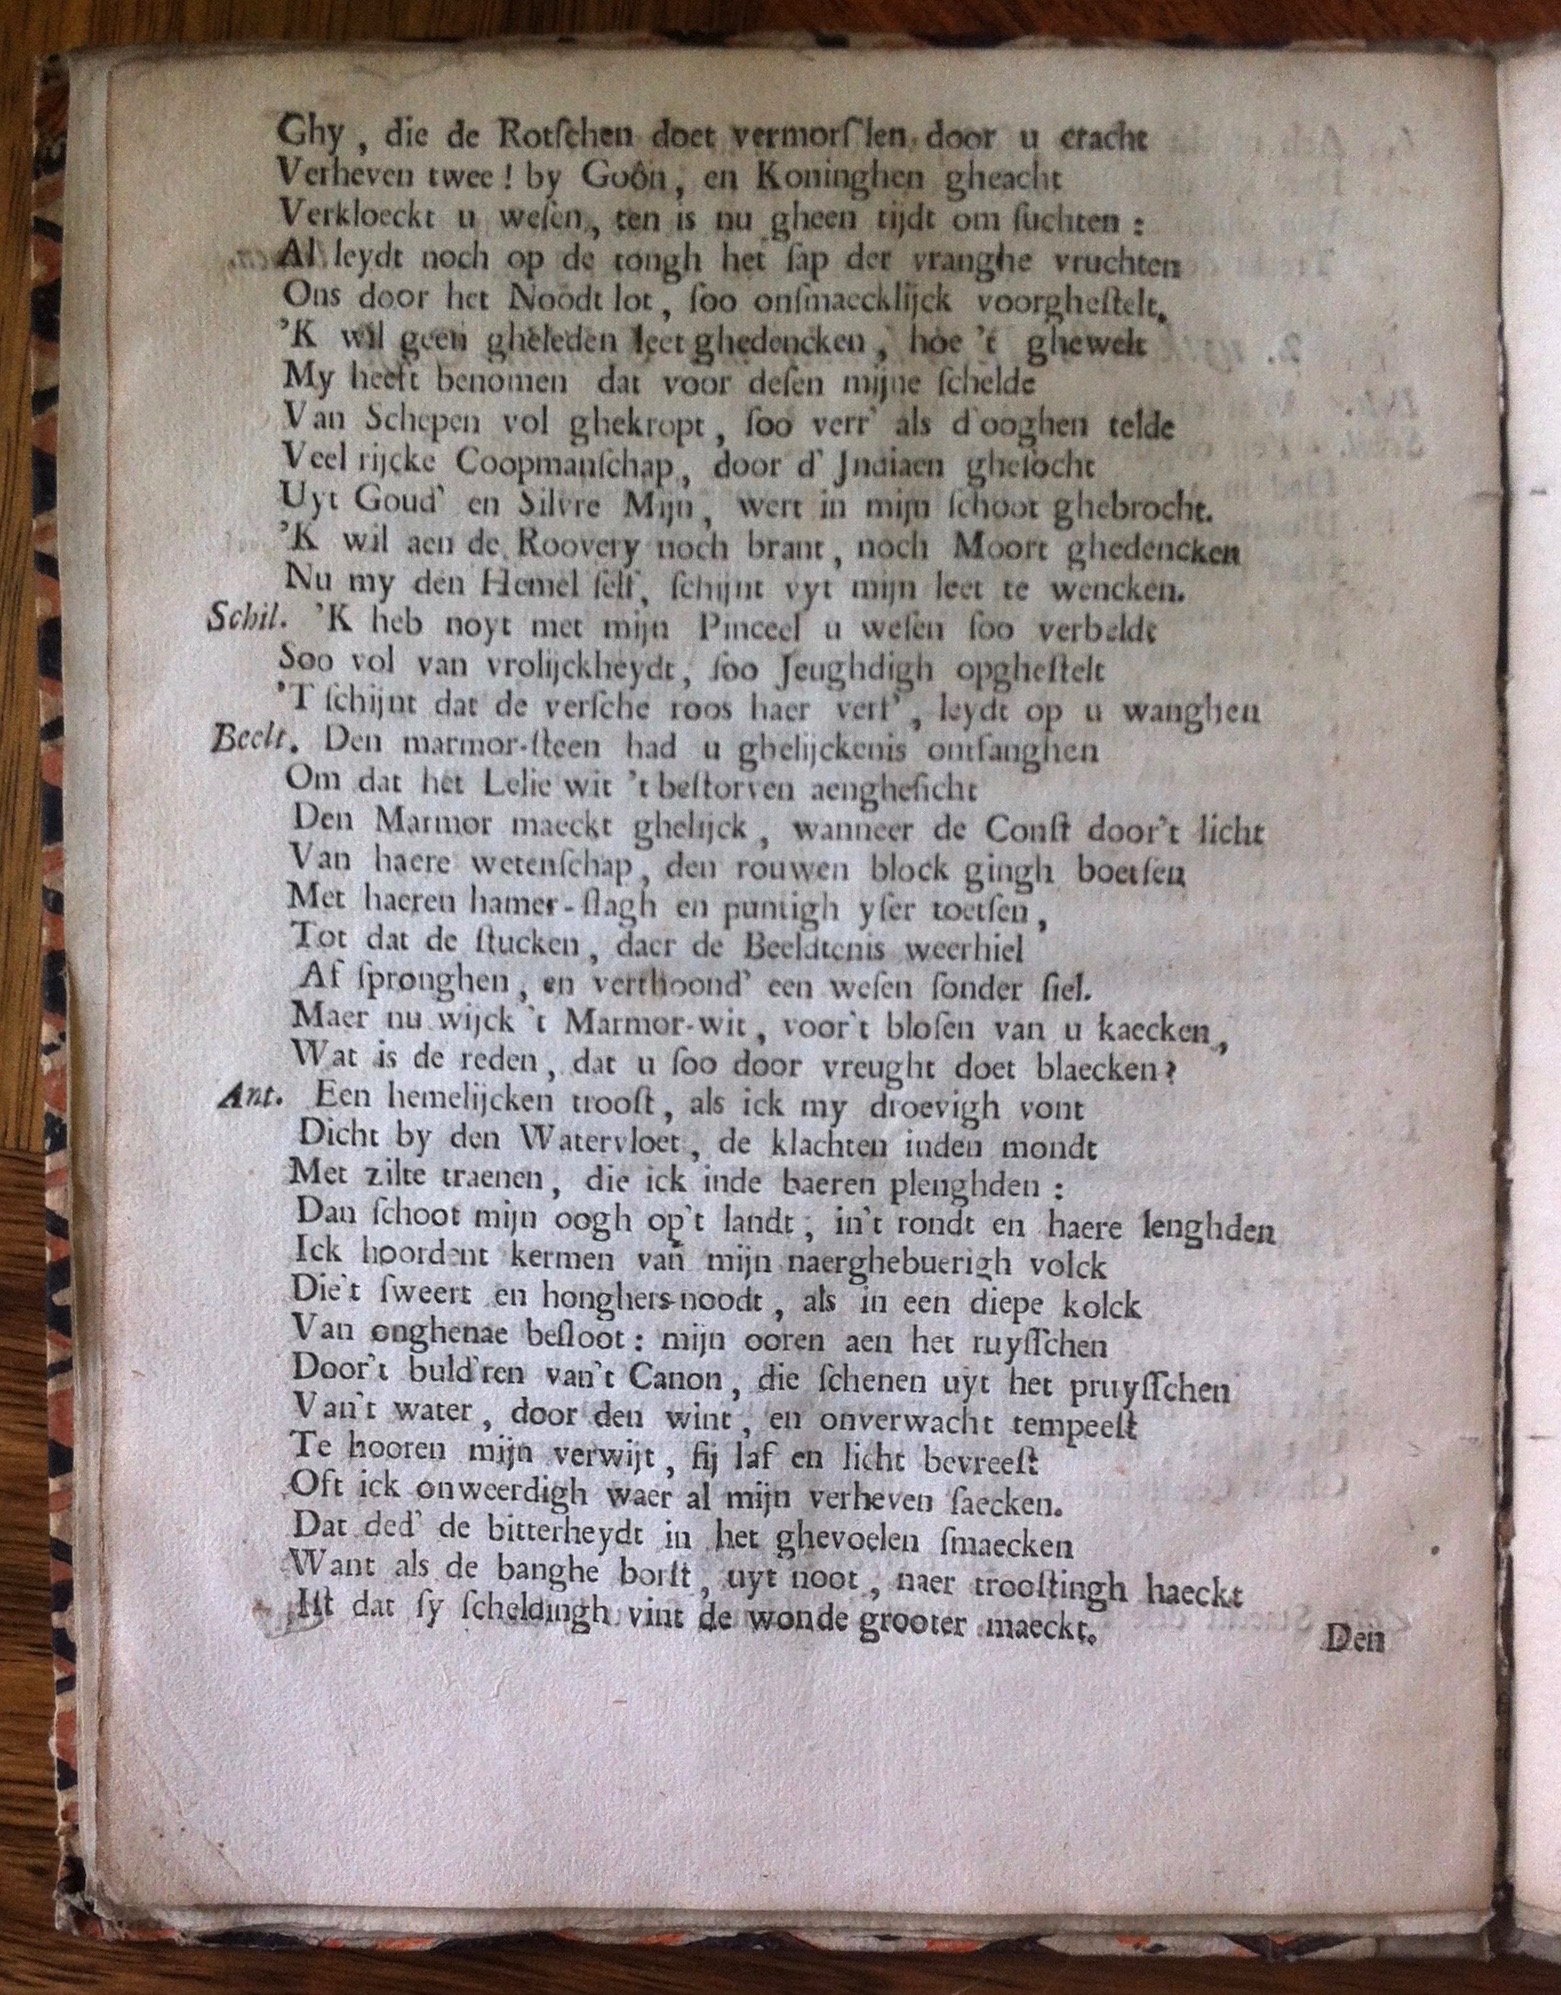 Ghy, die de Rotſchen doet vermorſ'len door u cracht
Verheven twee! by Goôn, en Koninghen gheacht
Verkloeckt u weſen, ten is nu gheen tijdt om ſuchten:
Al leydt noch op de tongh het ſap der vranghe vruchten
Ons door het Noodt lot, ſoo onſmaecklijck voorgheſtelt.
'K wil geen gheleden leet ghedencken, hoe 't ghewelt
My heeft benomen dat voor deſen mijne ſchelde
Van Schepen vol ghekropt, ſoo verr' als d'ooghen telde
Veel rijcke Coopmanſchap, door d' Jndiaen gheſocht
Uyt Goud' en Silvre Mijn, wert in mijn ſchoot ghebrocht.
'K wil aen de Roovery noch brant, noch Moort ghedencken
Nu my den Hemel ſelf, ſchijnt vyt mijn leet te wencken.
Schil. 'K heb noyt met mijn Pinceel u weſen ſoo verbeldt
Soo vol van vrolijckheydt, ſoo Jeughdigh opgheſtelt
'T ſchijnt dat de verſche roos haer verf', leydt op u wanghen
Beelt. Den marmor-ſteen had u ghelijckenis ontfanghen
Om dat het Lelie wit 't beſtorven aengheſicht
Den Marmor maeckt ghelijck, wanneer de Conſt door't licht
Van haere wetenſchap, den rouwen block gingh boetſen
Met haeren hamer-ſlagh en puntigh yſer toetſen,
Tot dat de ſtucken, daer de Beeldtenis weerhiel
Af ſpronghen, en verthoond' een weſen ſonder ſiel.
Maer nu wijck 't Marmor-wit, voor't bloſen van u kaecken,
Wat is de reden, dat u ſoo door vreught doet blaecken?
Ant. Een hemelijcken trooſt, als ick my droevigh vont
Dicht by den Watervloet, de klachten inden mondt
Met zilte traenen, die ick inde baeren plenghden:
Dan ſchoot mijn oogh op't landt, in't rondt en haere lenghden
Ick hoordent kermen van mijn naerghebuerigh volck
Die't ſweert en honghers-noodt, als in een diepe kolck
Van onghenae beſloot: mijn ooren aen het ruyſſchen
Door't buld'ren van't Canon, die ſchenen uyt het pruyſſchen
Van't water, door den wint, en onverwacht tempeeſt
Te hooren mijn verwijt, ſij laf en licht bevreeſt
Oft ick onweerdigh waer al mijn verheven ſaecken.
Dat ded' de bitterheydt in het ghevoelen ſmaecken
Want als de banghe borſt, uyt noot, naer trooſtingh haeckt
Iſt dat ſy ſcheldingh vint de wonde grooter maeckt.
Den